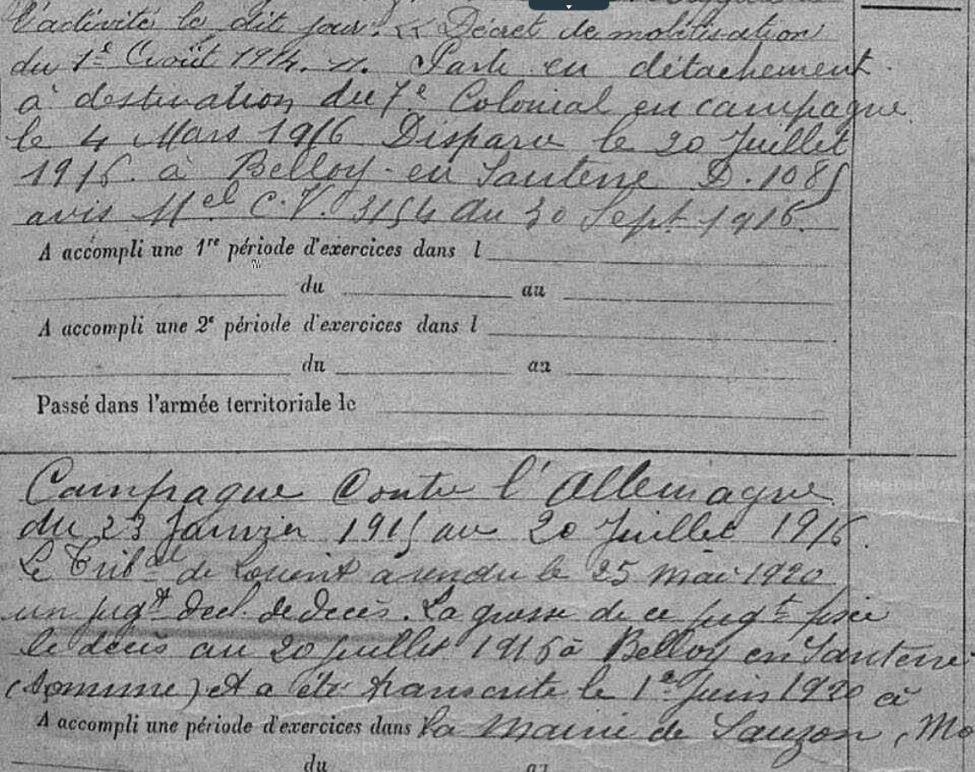 l'activité le dit jour. << Décret de mobilisation
du 1er Août 1914. >>. Parti en détachement
à destination du 7e Colonial en campagne
le 4 Mars 1916 Disparu le 20 Juillet
1916. à Belloy-en Santerre D. 1085
avis Mel C.V. 3154 du 30 Sept. 1916.
A accompli une 1re période d'exercices dans l
du au
A accompli une 2e période d'exercices dans l
du au
Passé dans l'armée territoriale le
Campagne Contre l'Allemagne
du 23 Janvier 1915 au 20 Juillet 1916.
Le Tribal de Lorient a rendu le 25 mai 1920
un jugt decl. de décès. La grosse de ce jugt fixe
le décès au 20 juillet 1916 à Belloy en Santerre
(Somme) et a été transcrite le 1er Juin 1920 à
A accompli une période d'exercices dans la Mairie de Sauzon, Mo
du au